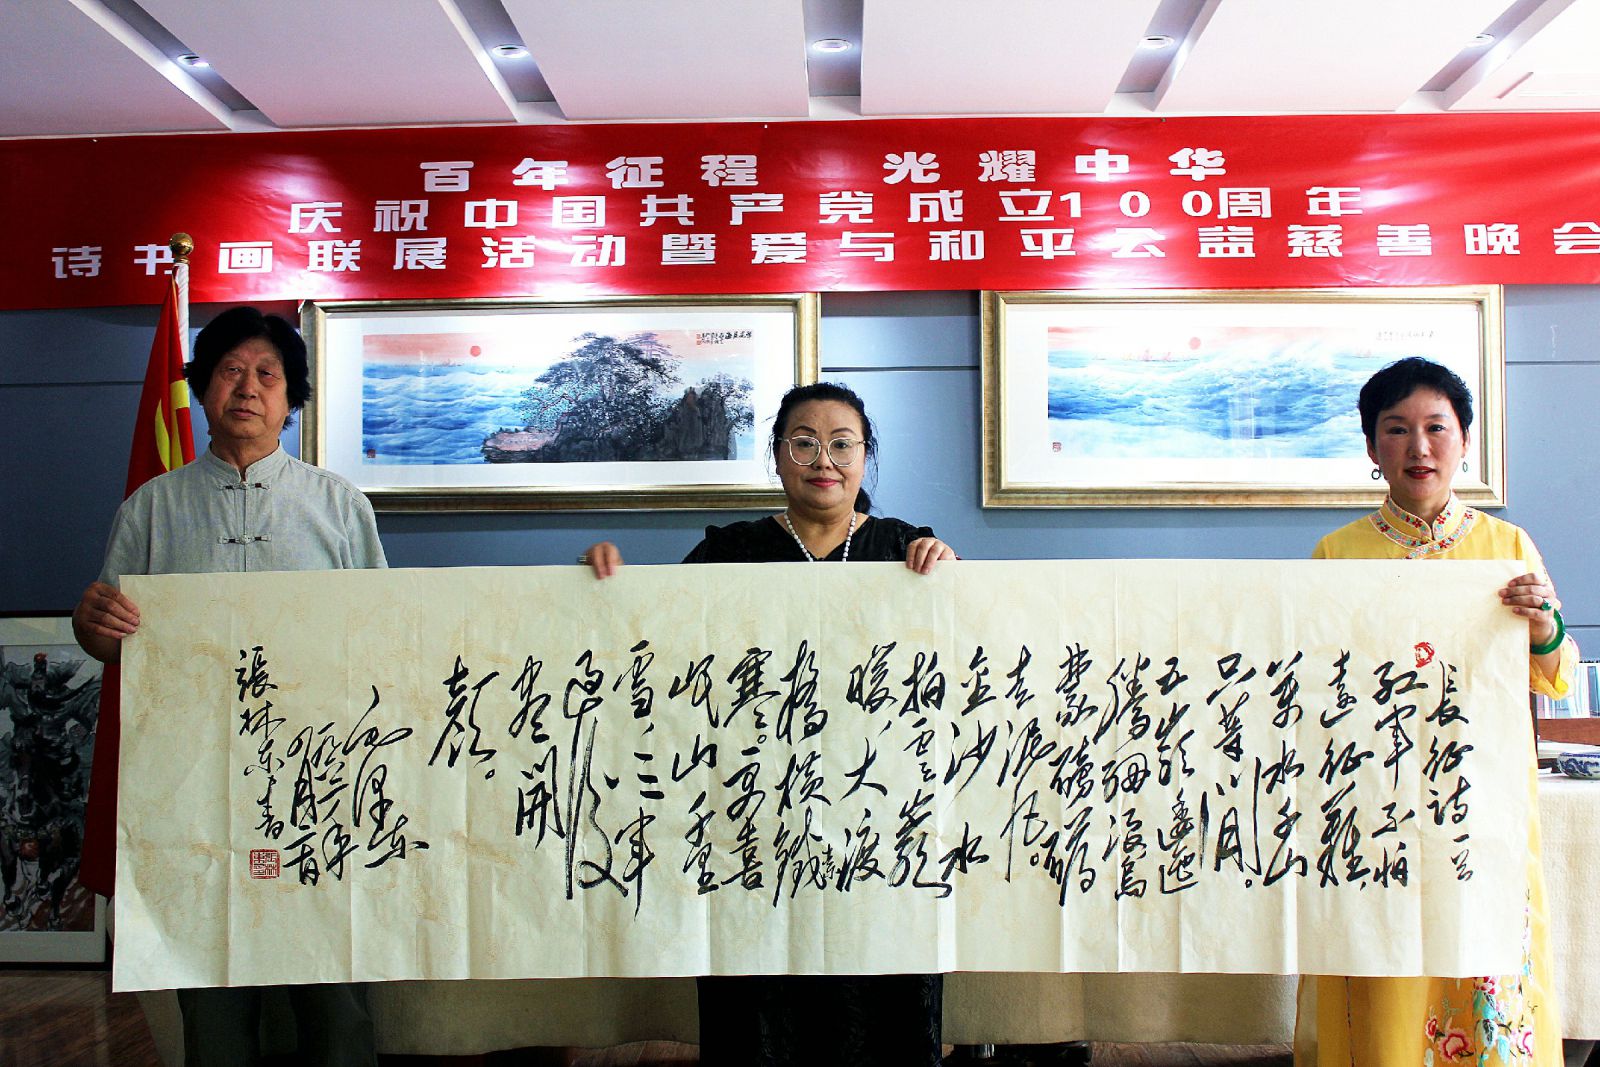 百年征程 光耀中华
庆祝中国共产党成立100周年
诗书画联展活动暨爱与和平公益慈善晚会
長征詩一首
红军不怕
遠征難,
萬水千山
只等闲。
五嶺逶迤
腾細浪烏
蒙磅礴
走泥丸。
金沙水
拍雲崖
暖,大渡
橋横鐵索
寒。更喜
岷山千里
雪,三军
过後
尽開
颜。
毛泽东
張林东書